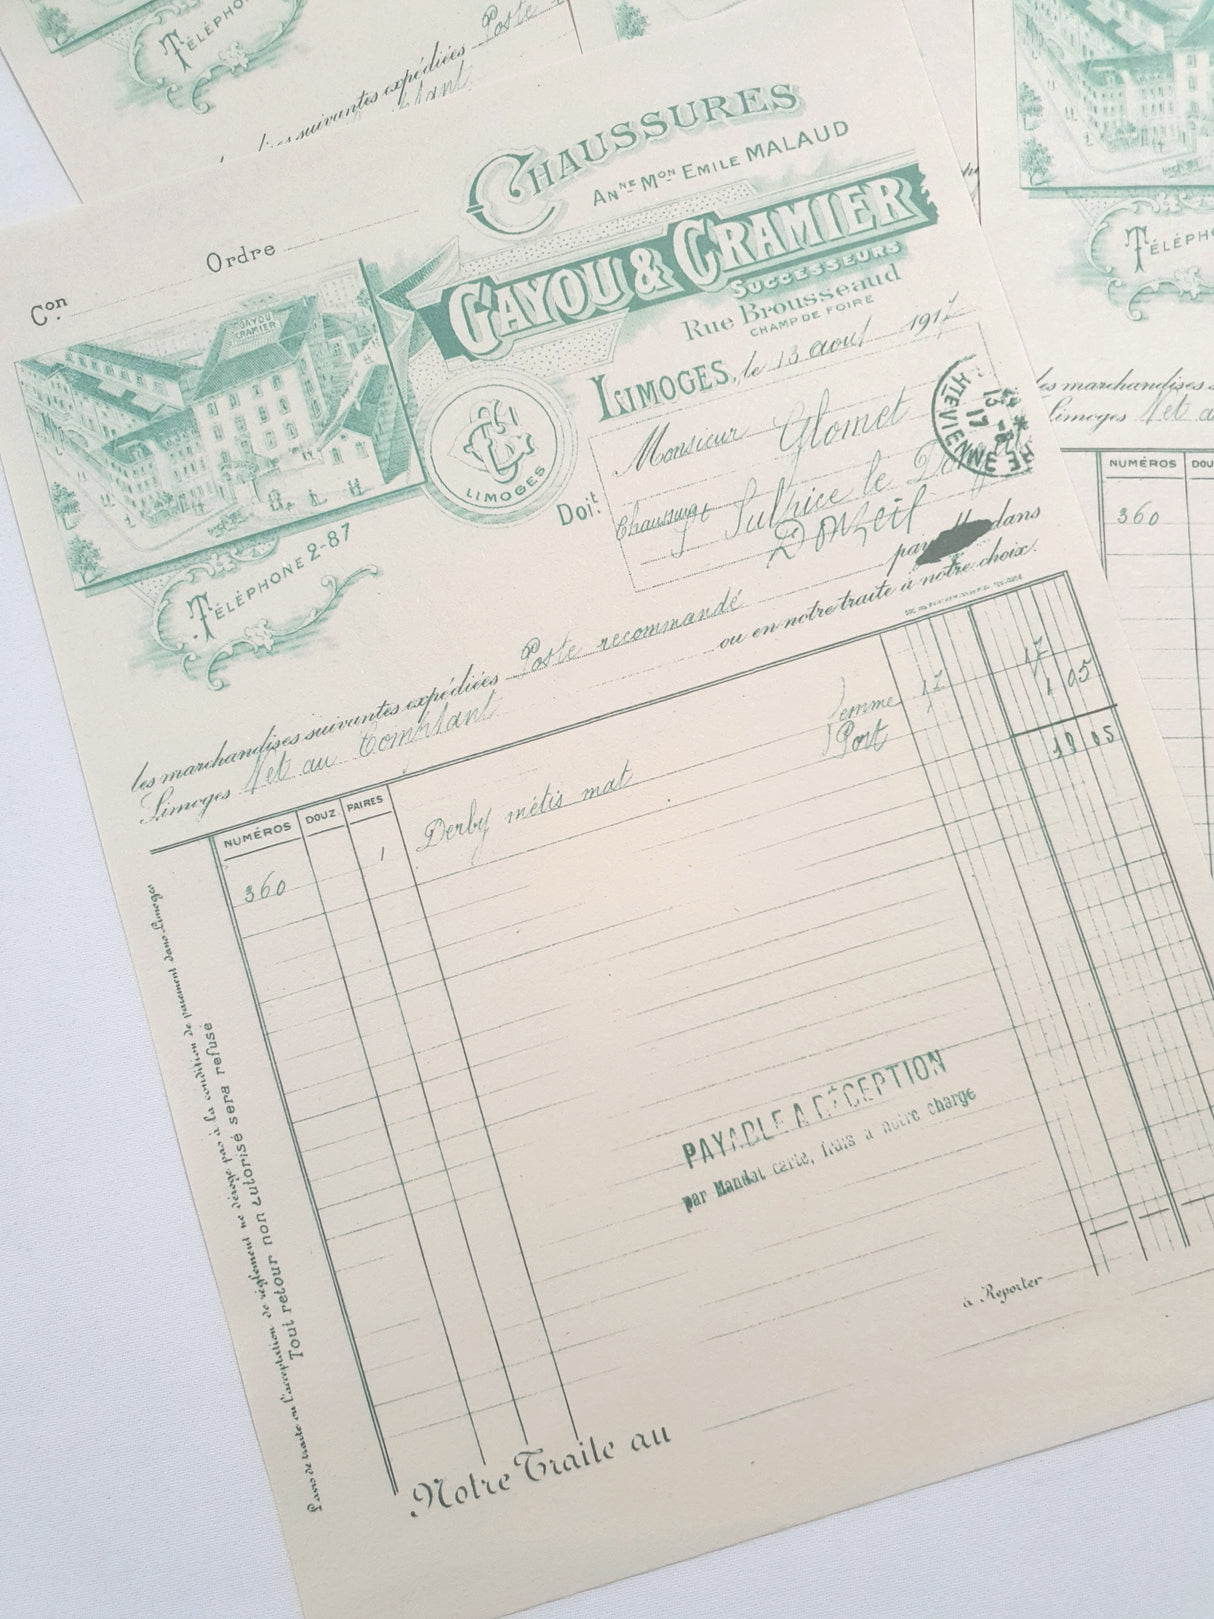 TÉLÉPHO
Poste
les suivantes expédiées
TÉLÉPHO
CHAUSSURES
Anne Mon EMILE MALAUD
GAYOU & CRAMIER
SUCCESSEURS
Rue Brousseaud
CHAMP DE FOIRE
Ordre
Con
GAYOU
CRAMIER
LIMOGES, le 13 aout 1917
LIMOGES
HTE VIENNE
13
17
Doit
Monsieur Glomet
Sulpice le
Donzeil
TÉLÉPHONE 2-87
les marchandises suivantes expédiées Poste recommandé dans
Limoges Net au Comptant ou en notre traite à notre choix.
NUMÉROS DOUZ. PAIRES
360 1 Derby métis mat femme 17 17
Port 1 05
18 05
PAYABLE A RÉCEPTION
par Mandat carte, frais à notre charge
à Reporter
Notre Traite au
L'avis de traite ou l'acceptation de règlement ne déroge pas à la condition de paiement dans Limoges
Tout retour non autorisé sera refusé
les marchandises s
Limoges Net a
NUMÉROS DOU
360